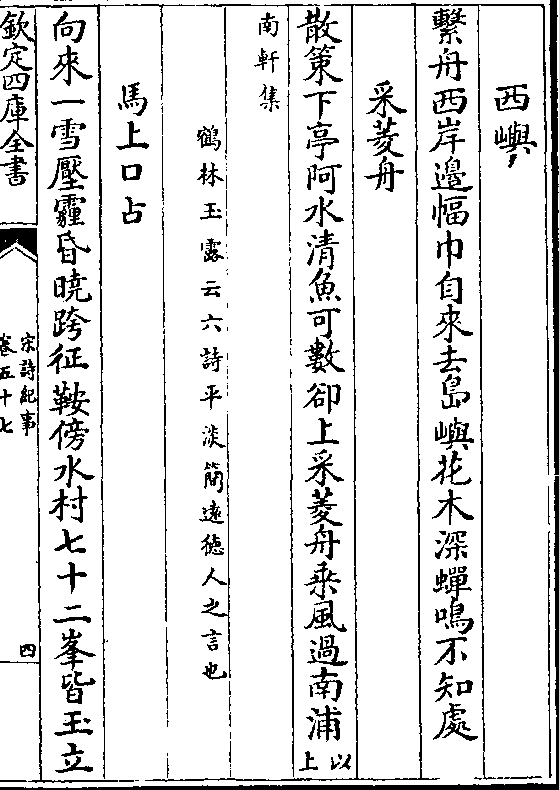 西嶼
繫舟西岸邊幅巾自來去島嶼花木深蟬鳴不知處
采菱舟
散策下亭阿水清魚可數卻上采菱舟乘風過南浦以上
南軒集
鶴林玉露云六詩平淡簡遠德人之言也
馬上口占
向來一雪壓霾昏曉跨征鞍傍水村七十二峯皆玉立
欽定四庫全書
宋詩紀事
卷五十七
四